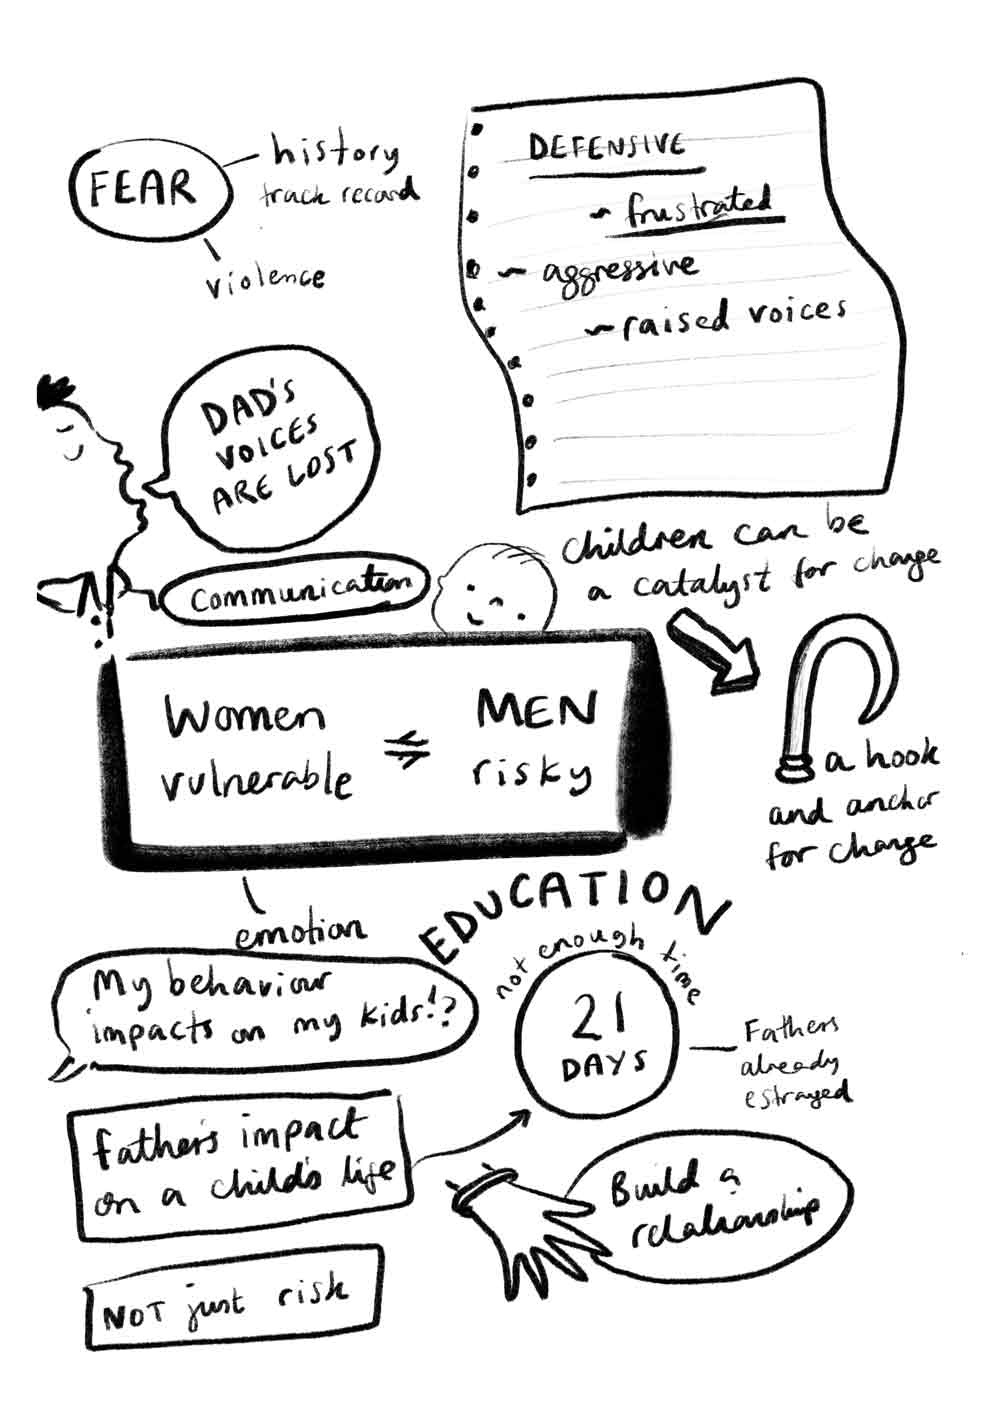 FEAR
history
track record
violence
DEFENSIVE
~ frustrated
~ aggressive
~ raised voices
DAD'S
VOICES
ARE LOST
communication
children can be
a catalyst for change
a hook
and anchor
for change
Women
vulnerable
⇌
MEN
risky
emotion
EDUCATION
not enough time
21
DAYS
Fathers
already
estrayed
My behaviour
impacts on my kids!?
Father's impact
on a child's life
Build a
relationship
NOT just risk